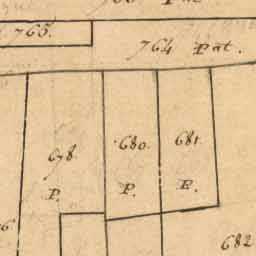 765.
764 Pat.
678.
P.
680.
P.
681.
P.
682